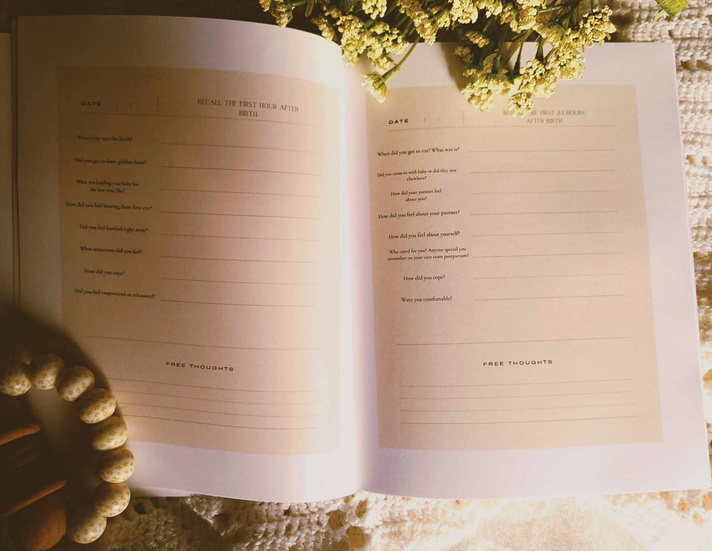 DATE
RECALL THE FIRST HOUR AFTER
BIRTH.
What time was the birth?
Did you get to have golden hour?
What was holding your baby for
the first time like?
How did you feel hearing their first cry?
Did you feel bonded right away?
What sensations did you feel?
How did you cope?
Did you feel empowered or exhausted?
FREE THOUGHTS
DATE
RECALL THE FIRST 24 HOURS
AFTER BIRTH.
When did you get to eat? What was it?
Did you room in with baby or did they stay
elsewhere?
How did your partner feel
about you?
How did you feel about your partner?
How did you feel about yourself?
Who cared for you? Anyone special you
remember on your care team postpartum?
How did you cope?
Were you comfortable?
FREE THOUGHTS